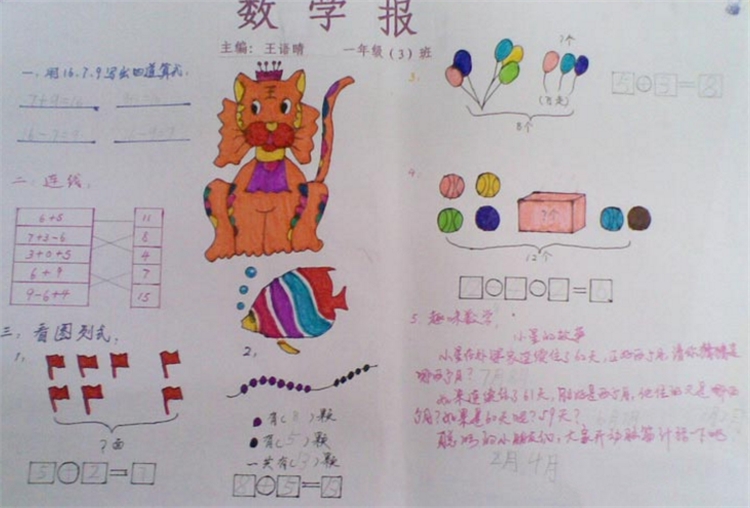 数学报
主编：王语晴 一年级（3）班
一、用16、7、9写出四道算式。
7+9=16
16-7=9 16-9=7
二、连线。
6+5 11
7+3-6 8
3+0+5 4
6+9 7
9-6+4 15
三、看图列式。
1、
?面
5 2 7
2、
有(8)颗
有(5)颗
一共有(13)颗
8+5=13
3.
?个
(飞走)
8个
5 3=8
4.
?个
12个
5、趣味数学。
小星的故事
小星在外婆家连续住了62天，正好两个月，请你猜猜是
哪两个月？
如果连续住了61天，刚好是两个月，他住的又是哪两
个月？如果是60天呢？59天？
聪明的小朋友们，大家开动脑筋计算一下吧
2月 4月